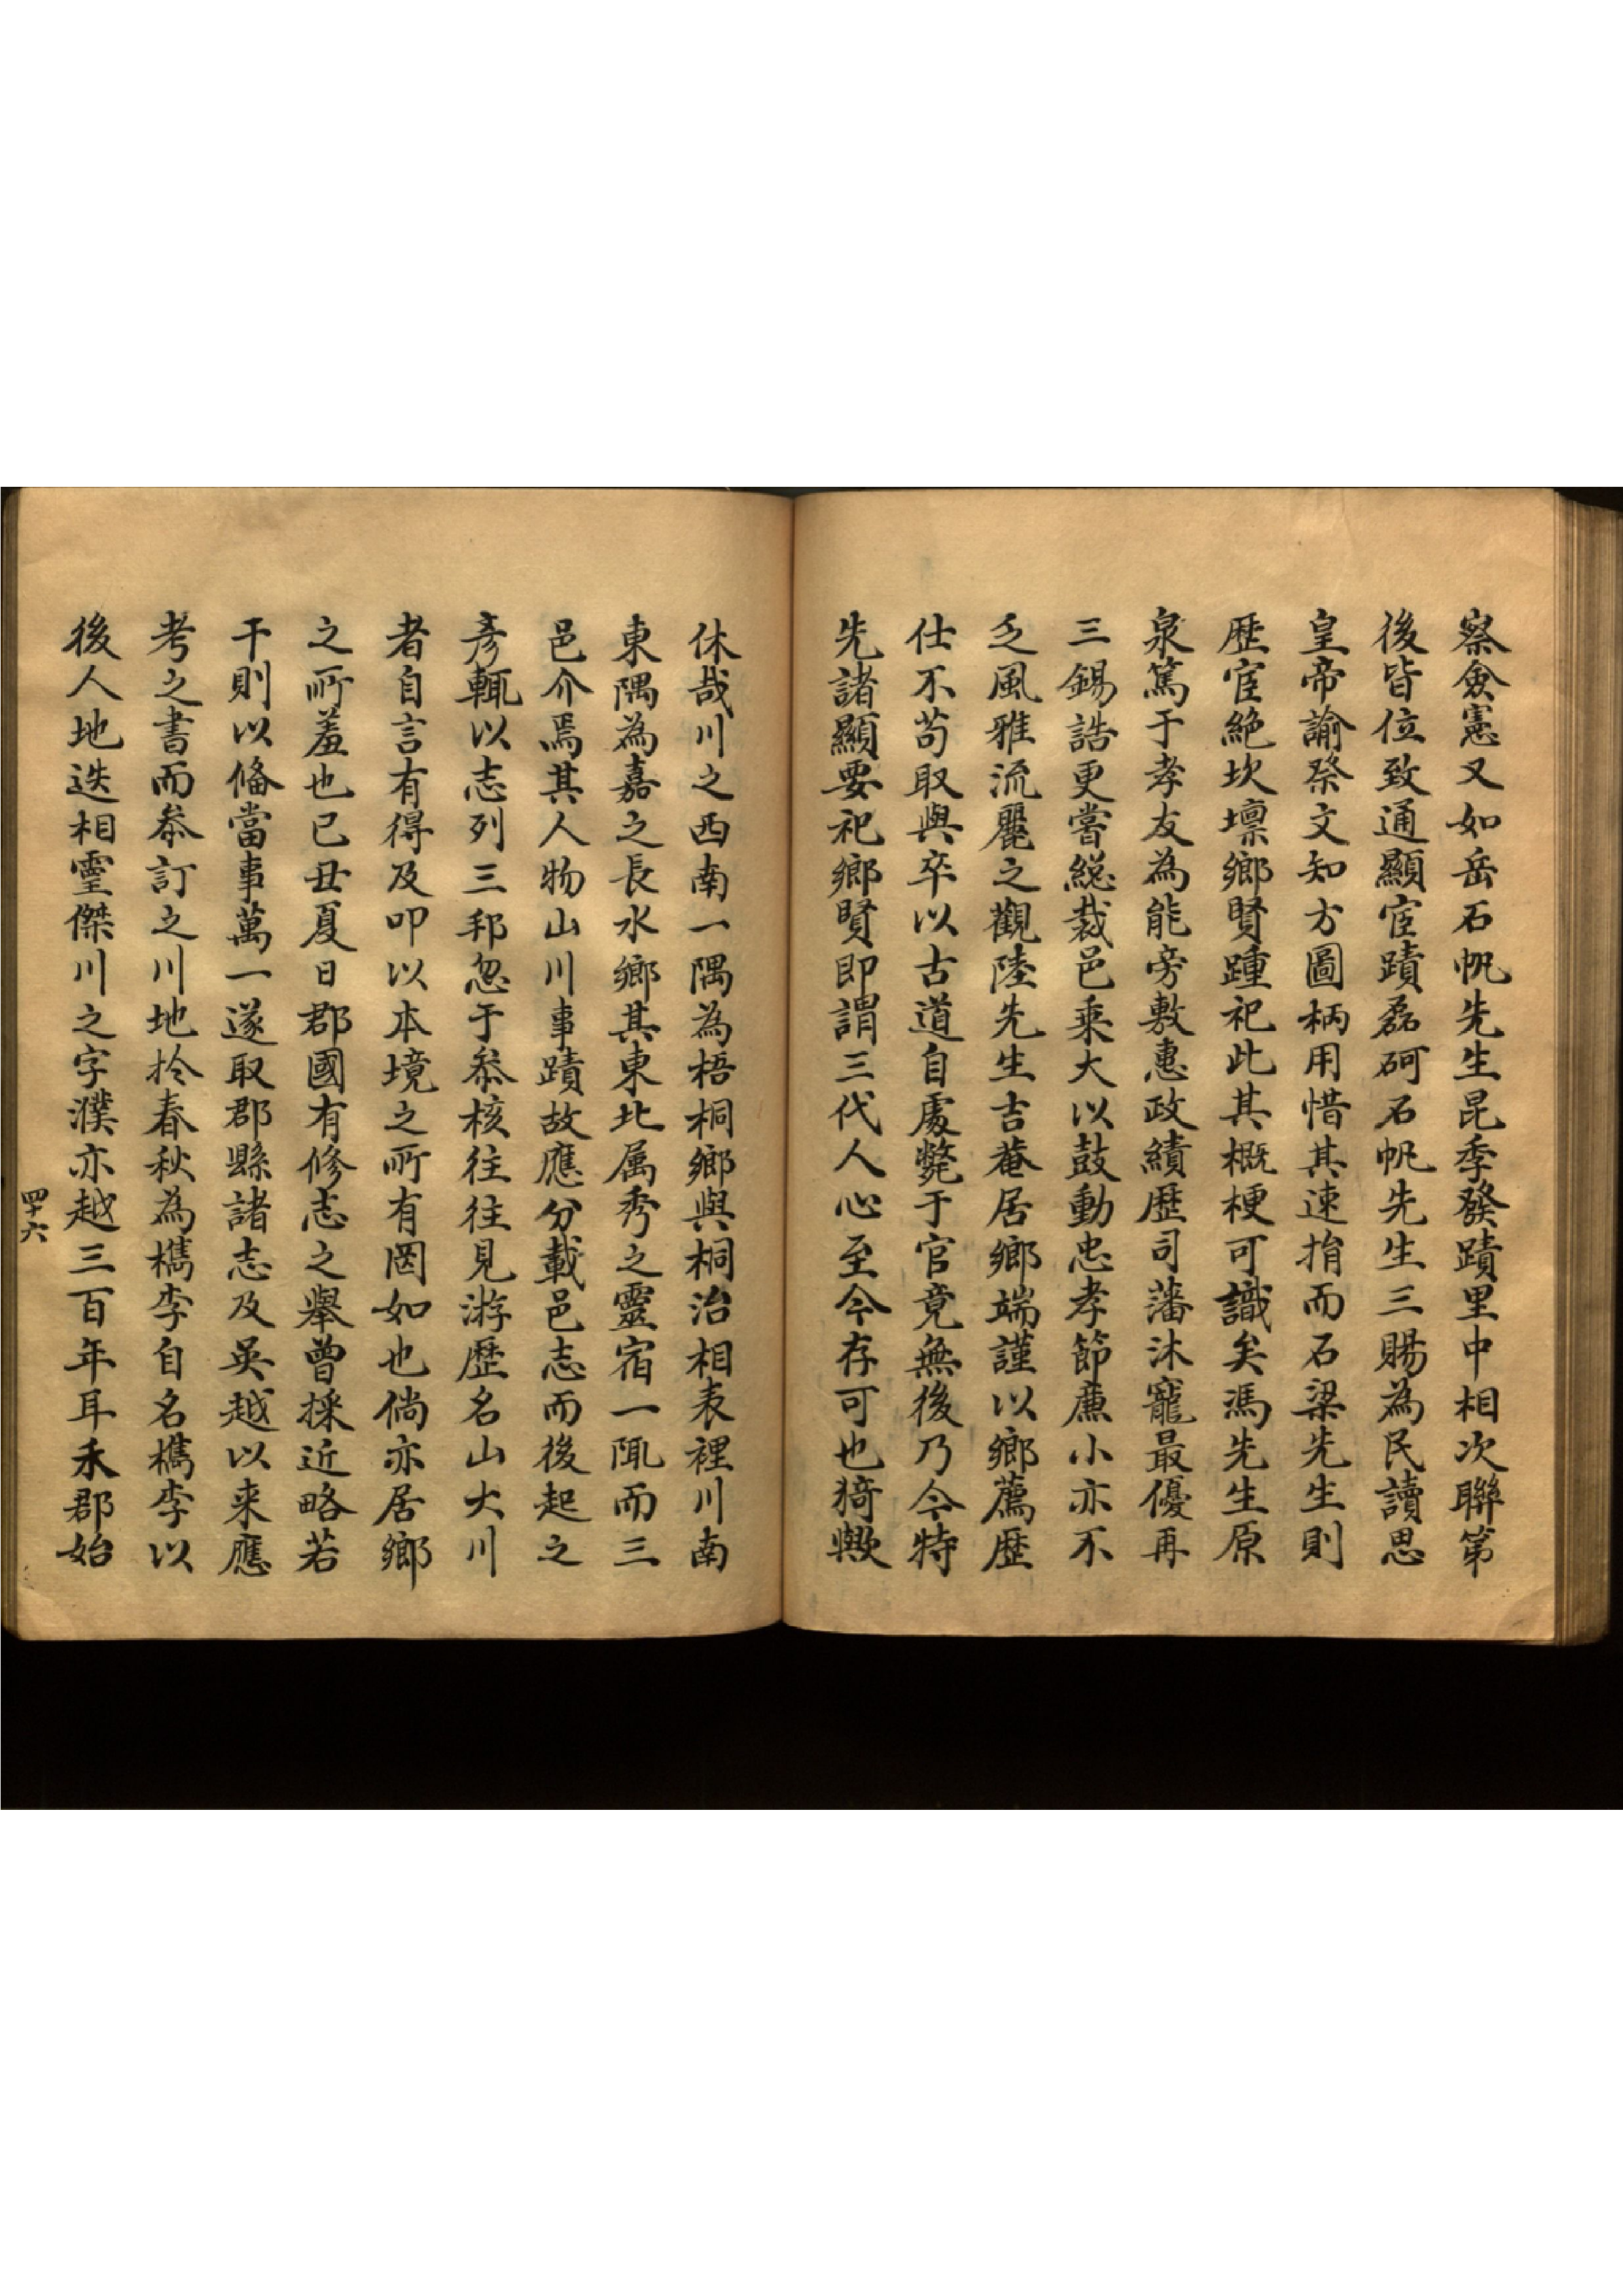 察僉憲又如岳石帆先生昆季發蹟里中相次聯第
後皆位致通顯宦蹟磊砢石帆先生三賜為民讀思
皇帝諭祭文知方圖柄用惜其速捐而石梁先生則
歷宦絶坎壈鄉賢踵祀此其概梗可識矣馮先生原
泉篤于孝友為能旁敷惠政績歷司藩沐寵最優再
三錫誥更嘗総裁邑乗大以鼓動忠孝節廉小亦不
乏風雅流麗之觀陸先生吉菴居鄉端謹以鄉薦歷
仕不苟取與卒以古道自處斃于官竟無後乃今特
先諸顯要祀鄉賢即謂三代人心至今存可也猗歟
休哉川之西南一隅為梧桐鄉與桐治相表裡川南
東隅為嘉之長水鄉其東北属秀之靈宿一陬而三
邑介焉其人物山川事蹟故應分載邑志而後起之
彦輒以志列三邦忽于叅核往往見游歷名山大川
者自言有得及叩以本境之所有罔如也倘亦居鄉
之所羞也己丑夏日郡國有修志之舉曾採近略若
干則以俻當事萬一遂取郡縣諸志及吳越以来應
考之書而叅訂之川地扵春秋為檇李自名檇李以
後人地迭相靈傑川之字濮亦越三百年耳禾郡始
四十六